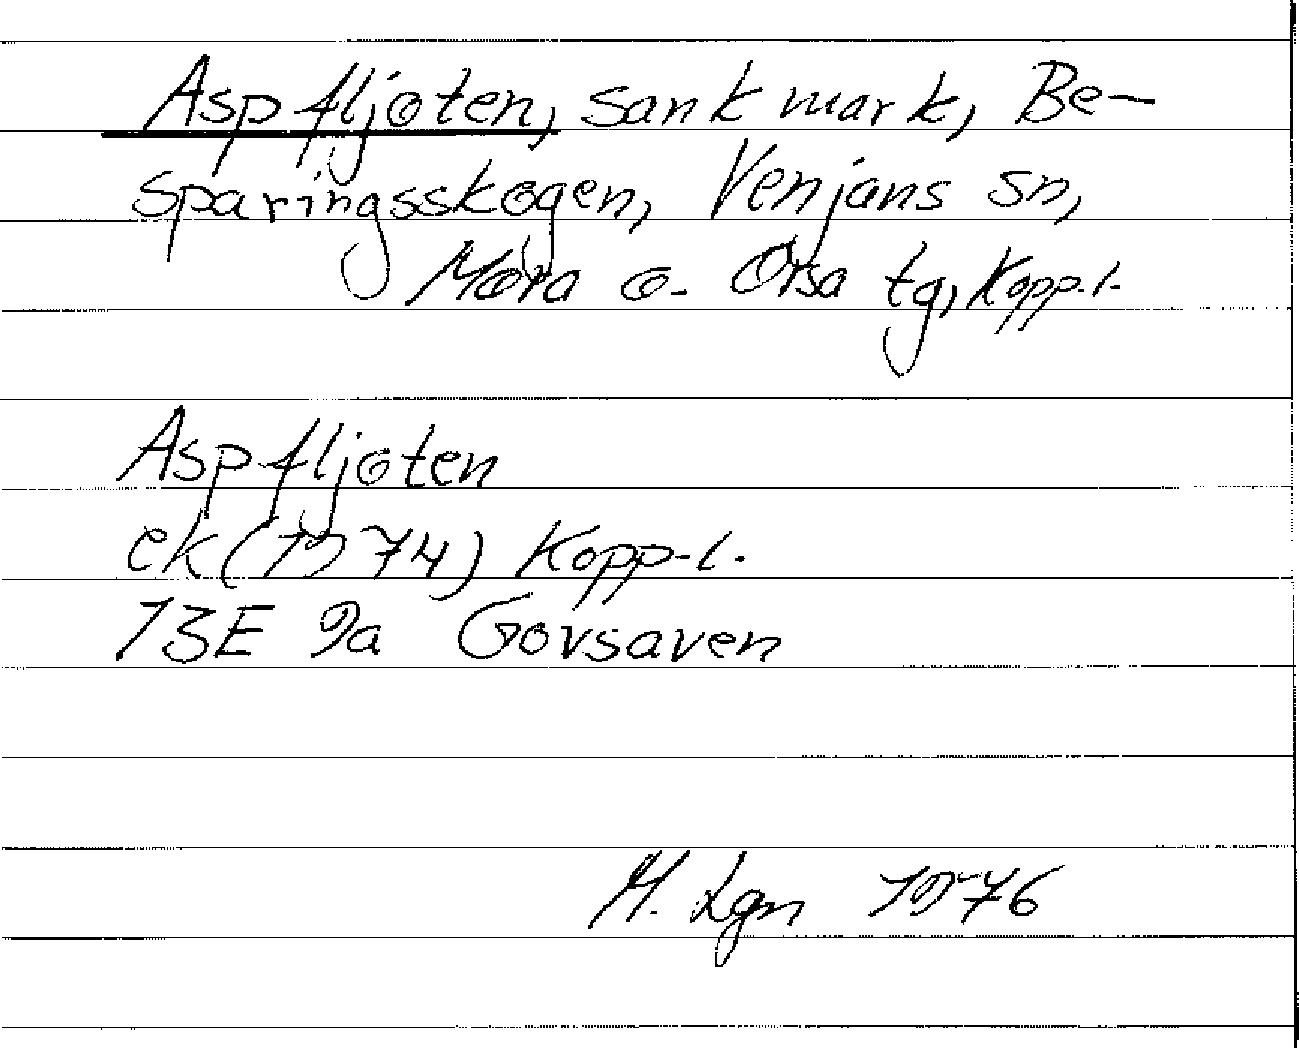 Aspfljoten, sank mark, Be-
sparingsskogen, Venjans sn,
Mora o. Orsa tg, Kopp.l.
Aspfljoten
ek (1974) Kopp.l.
13E 9a Govsaven
M. Lgn 1976